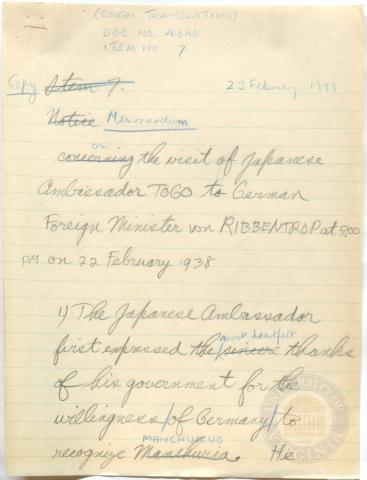 (ROUGH TRANSLATION)
DOC. NO. 4040
ITEM NO 7
Copy Item 7. 23 February 1938
Notice Memorandum
on
concerning the visit of Japanese
Ambassador TOGO to German
Foreign Minister von RIBBENTROP at 5,00
P.M. on 22 February 1938
1) The Japanese Ambassador
most heartfelt
first expressed the / sincere thanks
of his government for the
willingness / of Germany / to
MANCHUKUO
recognize Manchuria. He
UNIVERSITY OF VIRGINIA